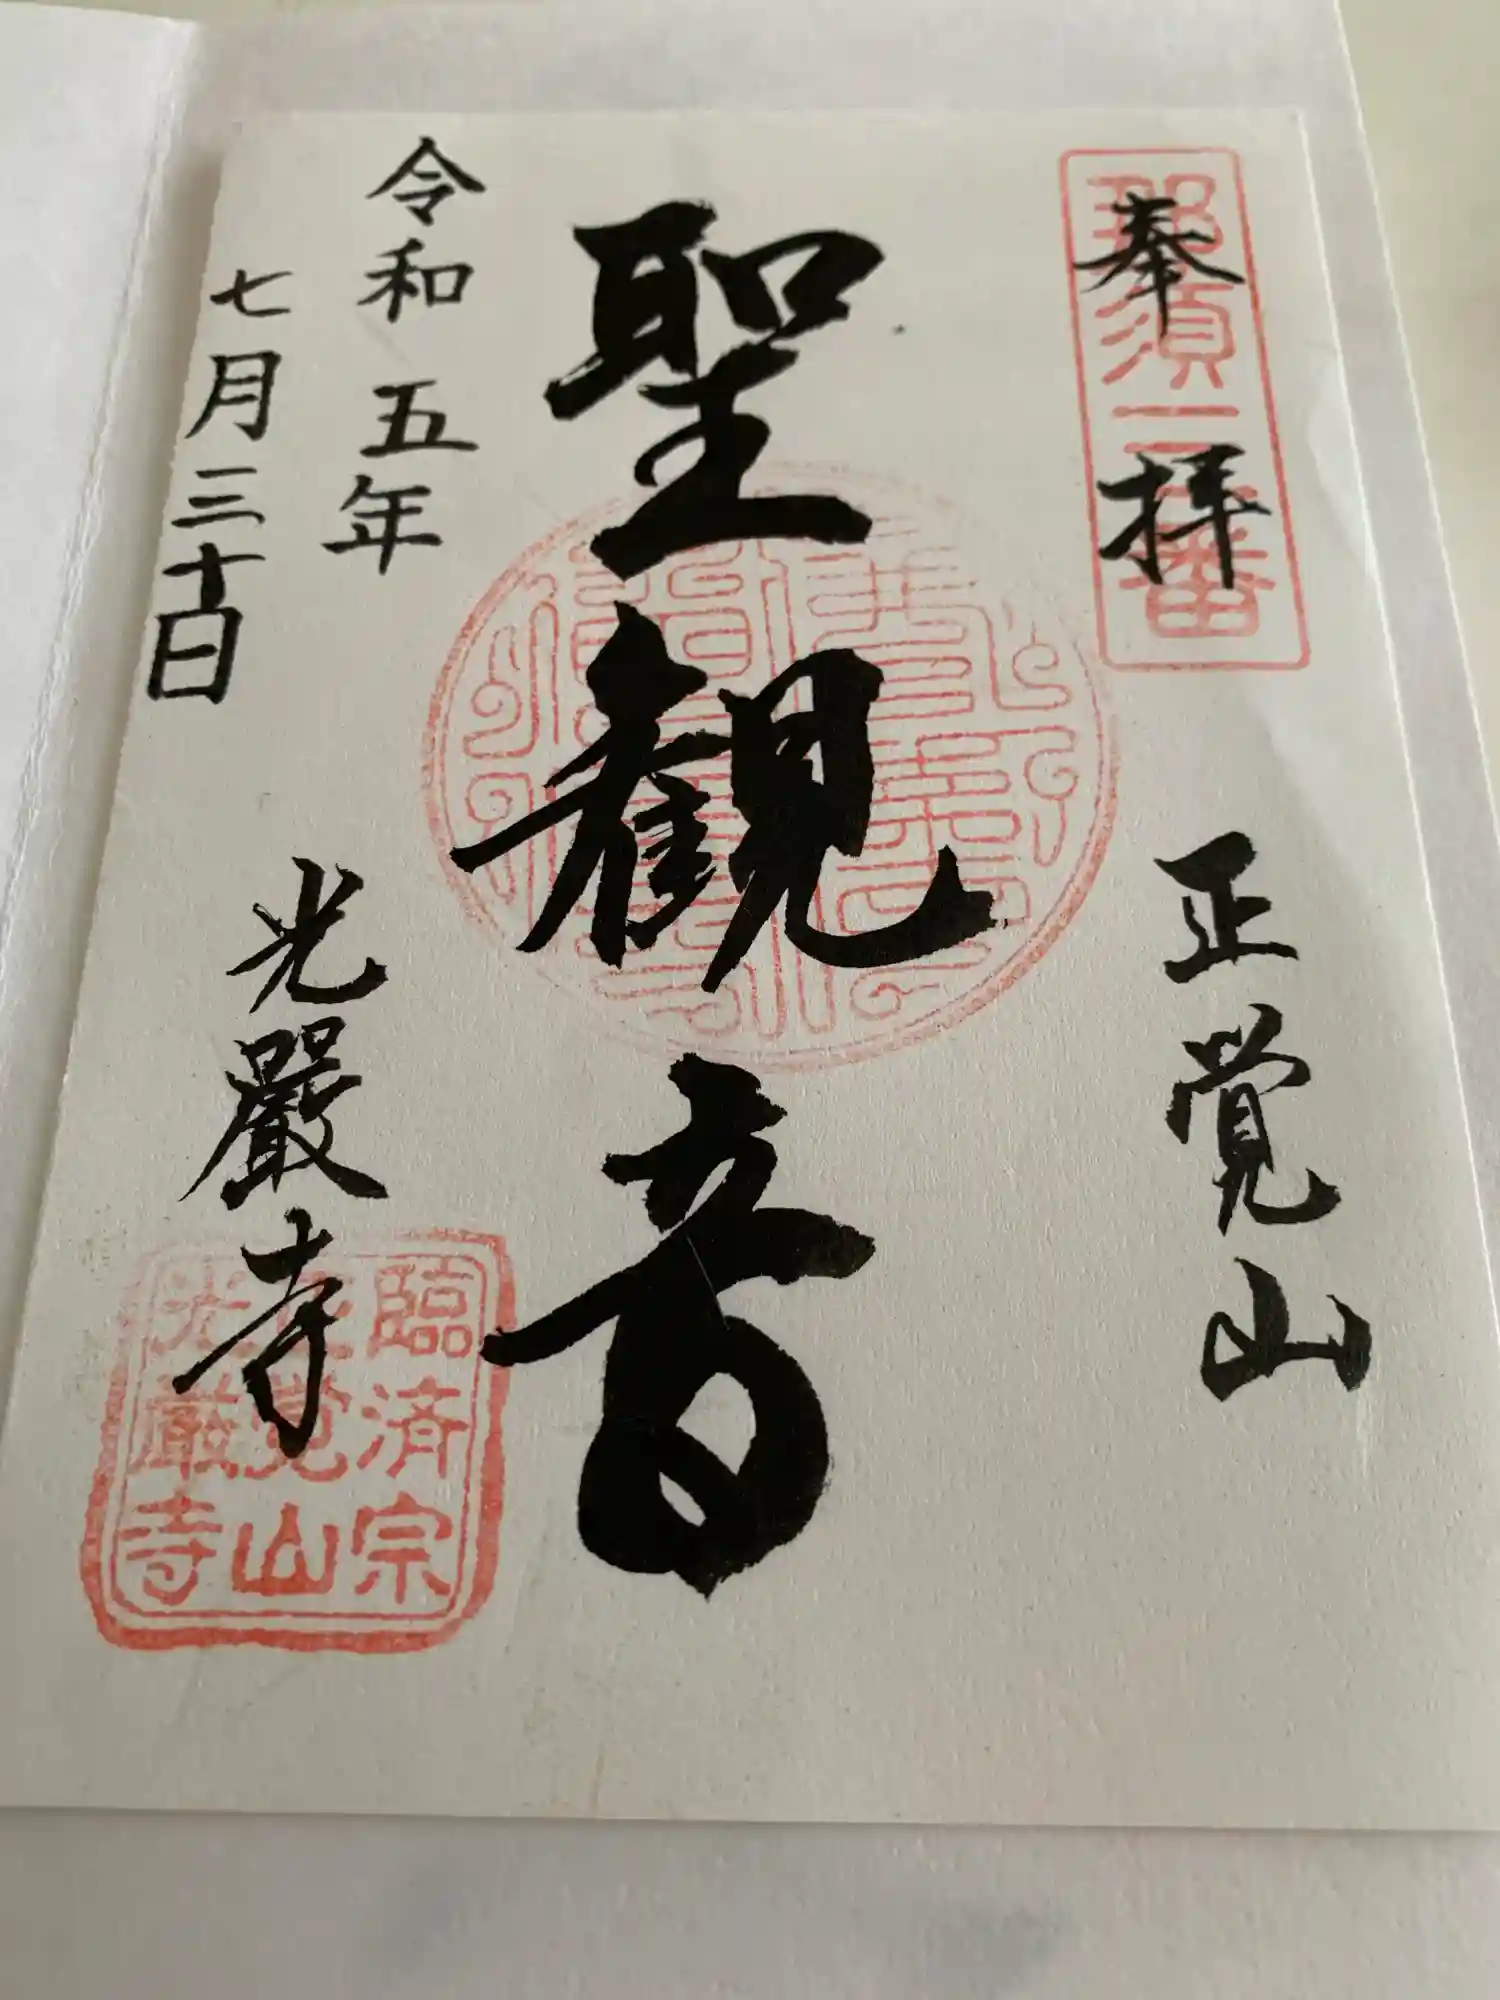 奉拝
那須三番
正覚山
聖観音
令和五年
七月三十日
光嚴寺
臨済宗
正覚山
光厳寺